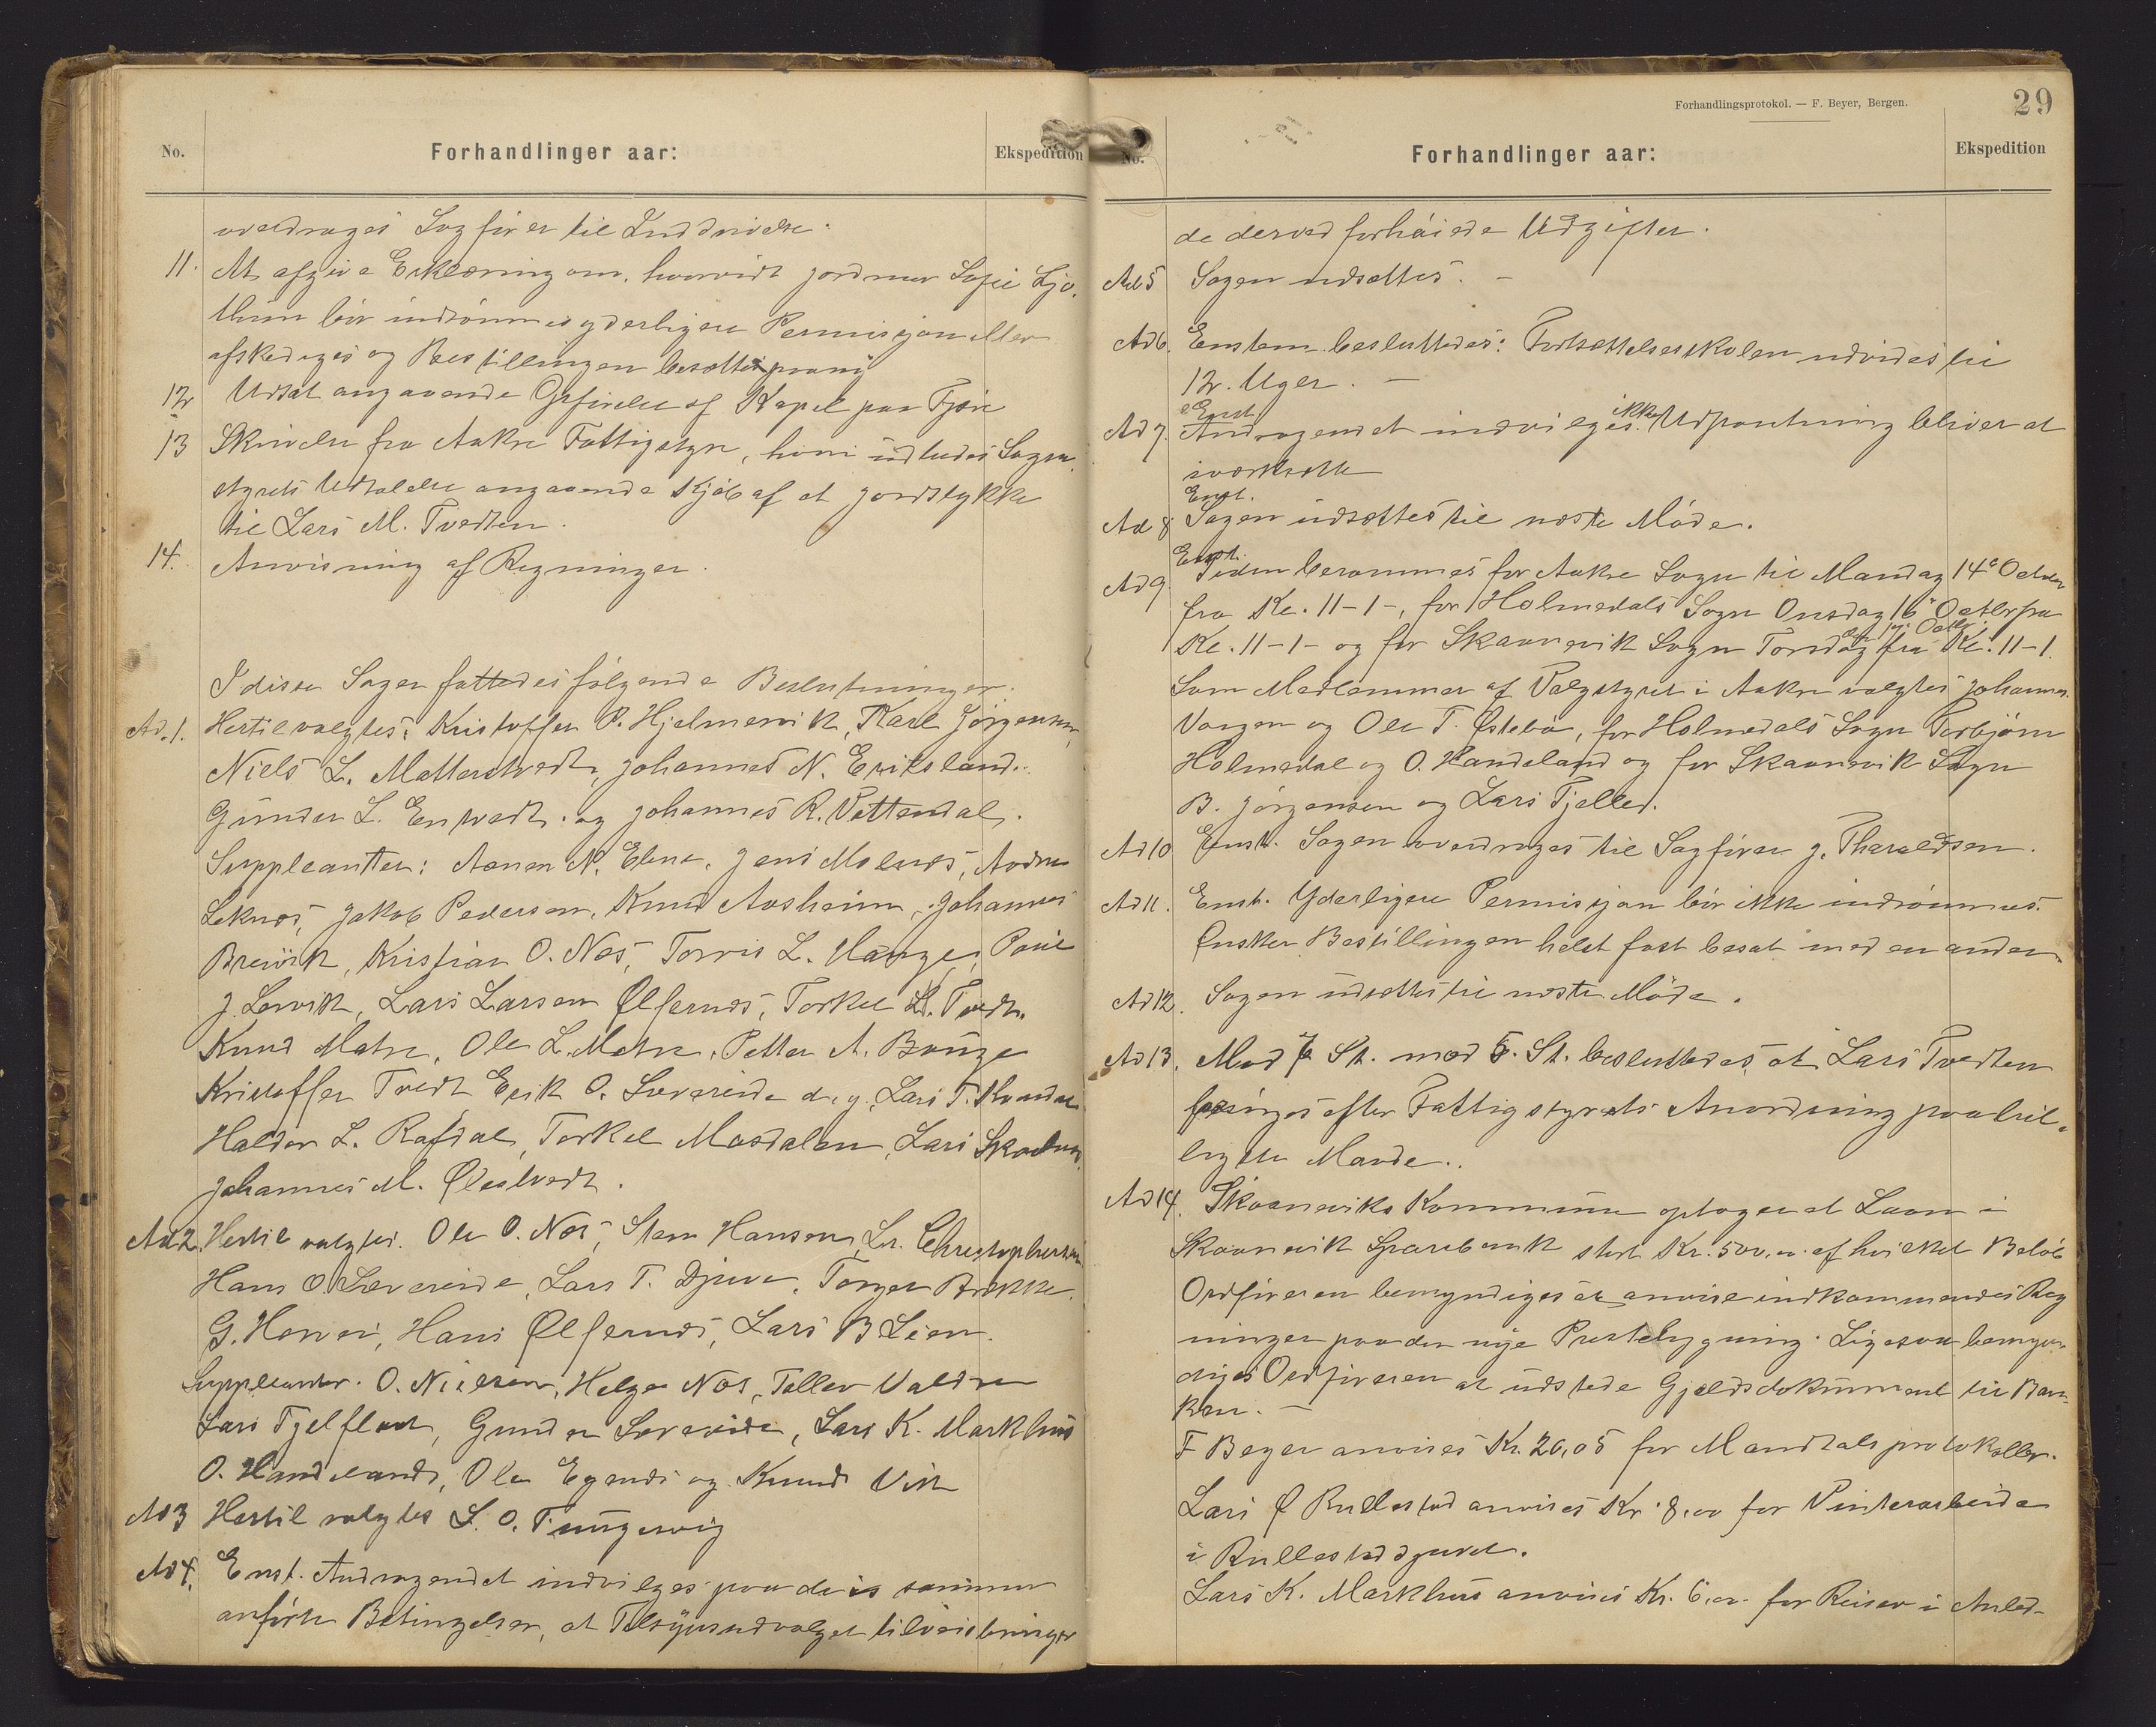 No. Forhandlinger aar: Ekspedition
overdrages Sagfører til Inddrivelse.
11. At afgive Erklæring om, hvorvidt Jordmor Sofie Ljo-
thun bør indrømmes yderligere Permisjon eller
afskediges og Bestillingen besættes paany
12 Udsat angaaende Opførelse af Kapel paa Fjære
13 Skrivelse fra Aakre Fattigstyre, hvori udbedes Sogne-
styrets Udtalelse angaaende Kjøb af et Jordstykke
til Lars M. Tvedten.
14. Anvisning af Regninger.
I disse Sager fattedes følgende Beslutninger.
Ad. 1. Hertil valgtes: Kristoffer P. Hjelmevik, Karl Jørgensen,
Niels L. Matterstvedt, Johannes N. Eriksland.
Gunder L. Entvedt. og Johannes R. Vettendal.
Suppleanter: Aanen N. Ebne, Jens Molnes, Andreas
Leknes, Jakob Pedersen, Knud Aasheim, Johannes
Brevik, Kristian O. Næs, Torris L. Hauge, Poul
J. Lervik, Lars Larsen Ølfernæs, Torkel L. Tvedt.
Knud Matre, Ole L. Matre, Petter A. Bauge
Kristoffer Tvedt Erik O. Sævereide d.y., Lars T.
Haldor L. Rafdal, Torkel Mosdalen, Lars
Johannes M. Ølestvedt.
Ad 2. Hertil valgtes. Ole O. Næs, Sten Hansen, Lr. Christophersen
Hans O. Sævereide, Lars T. Djuve, Torger Brekke
G. Hervei, Hans Ølfernæs, Lars B Lien.
Suppleanter. O. Nielsen, Helge Næs, Tallev Valdre
Lars Fjelflaat, Gunder Sævereide, Lars K. Markhus
O. Handeland, Ole Egenæs og Knud Vik
Ad 3 Hertil valgtes L. O. Tungesvig
Ad 4. Enst. Andragendet indvilges paa de i samme
anførte Betingelser, at Tilsynsudvalget tilveiebringer
Forhandlingsprotokol. — F. Beyer, Bergen. 29
No. Forhandlinger aar: Ekspedition
de derved forhøiede Udgifter.
Ad 5 Sagen udsættes. –
Ad 6. Enstem. besluttedes: Fortsættelsesskolen udvides til
12. Uger. –
Enst. ikke
Ad 7. Andragendet indvilges. Udpantning bliver at
iværksætte
Enst.
Ad 8 Sagen udsættes til næste Møde.
Enst.
Ad 9 Tiden berammes for Aakre Sogn til Mandag 14de Octobr
fra Kl. 11-1-, for Holmedals Sogn Onsdag 16 Octbr fra
Kl. 11-1- og for Skaanevik Sogn Torsdag den 17. Octbr fra Kl. 11-1.
Som Medlemmer af Valgstyret i Aakre valgtes Johannes
Vangen og Ole T. Østebø, for Holmedals Sogn Torbjørn
Holmedal og O. Handeland og for Skaanevik Sogn
B. Jørgensen og Lars Tjelle.
Ad 10 Enst. Sagen overdrages til Sagfører J. Tharaldsen.
Ad 11. Enst. Yderligere Permisjon bør ikke indrømmes.
Ønsker Bestillingen helst fast besat med en anden.
Ad 12. Sagen udsættes til næste Møde.
Ad 13. Med St. mod 5. St. besluttedes, at Lars Tvedten
forsørges efter Fattigstyrets Anordning paa bil-
ligste Maade..
Ad 14. Skaaneviks Kommune optager et Laan i
Skaanevik Sparebank stort Kr. 500.00. af hvilket Beløb
Ordføreren bemyndiges at anvise indkommendes Reg
ninger paa den nye Prestebygning. Ligesaa bemyn-
diges Ordføreren at udstede Gjældsdokument til Ban-
ken. –
F Beyer anvises Kr. 20,05 for Mandtalsprotokoller.
Lars Ø Rullestad anvises Kr. 8.00 for Vinterarbeide
i Rullestadjuvet.
Lars K. Markhus anvises Kr. 6.00. for Reiser i Anled-